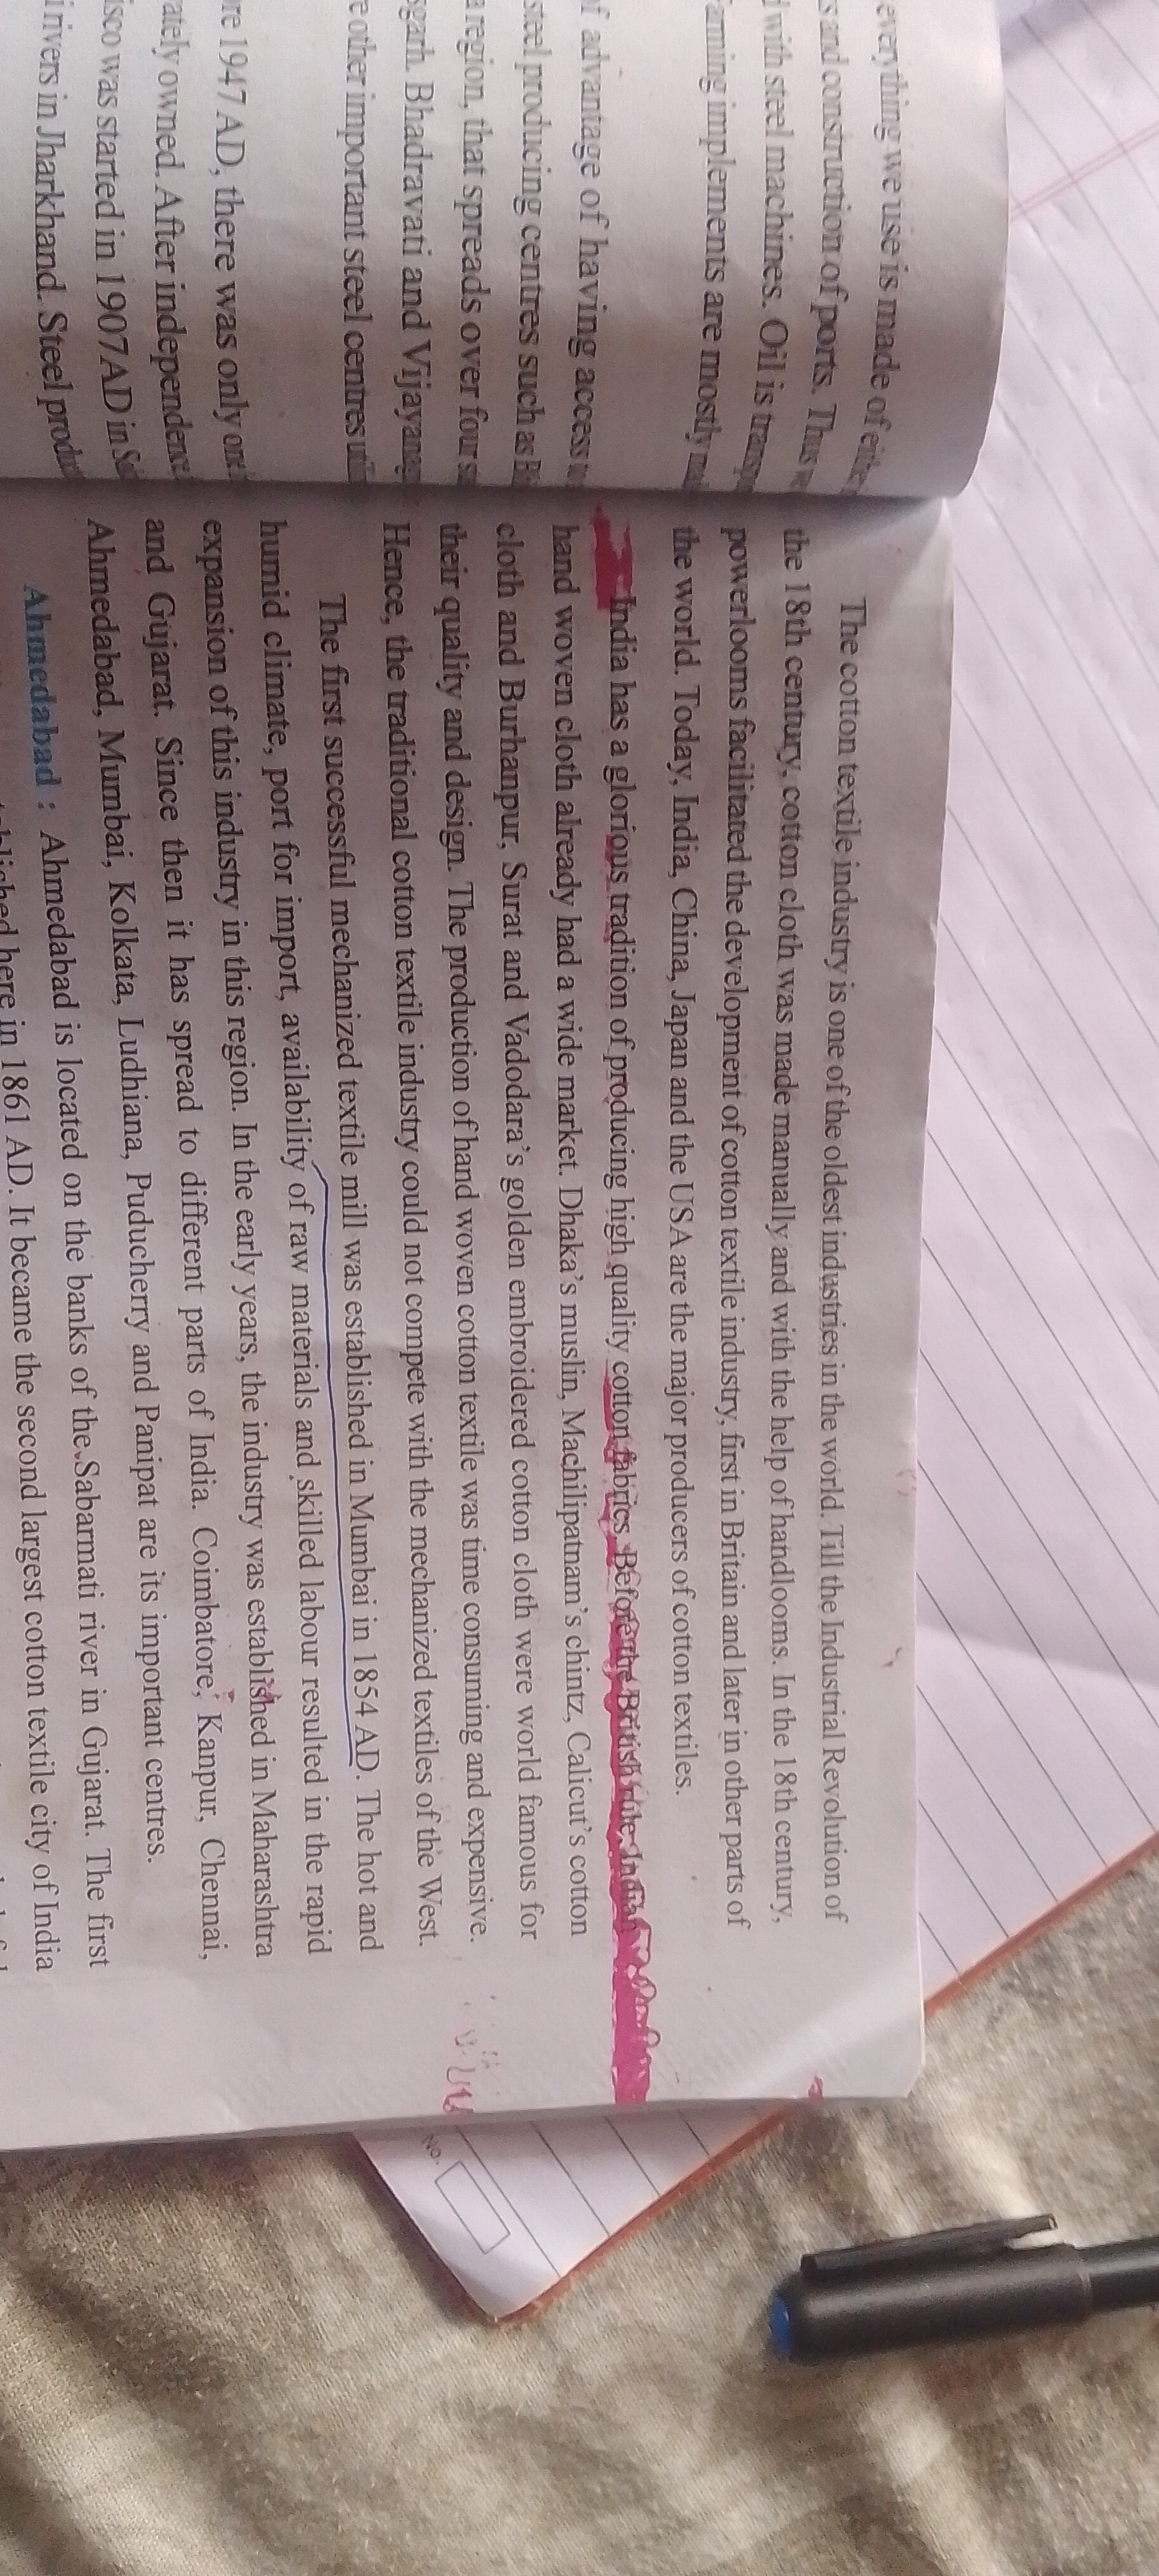 everything we use is made of
s and construction of ports. Thus
with steel machines. Oil is
arming implements are mostly
f advantage of having access
steel producing centres such as
a region, that spreads over four
garh. Bhadravati and
e other important steel centres
re 1947 AD, there was only one
ately owned. After independence
isco was started in 1907AD in
i rivers in Jharkhand. Steel
The cotton textile industry is one of the oldest industries in the world. Till the Industrial Revolution of
the 18th century, cotton cloth was made manually and with the help of handlooms. In the 18th century,
powerlooms facilitated the development of cotton textile industry, first in Britain and later in other parts of
the world. Today, India, China, Japan and the USA are the major producers of cotton textiles.
India has a glorious tradition of producing high quality cotton fabrics. Before the British rule, Indian
hand woven cloth already had a wide market. Dhaka's muslin, Machilipatnam's chintz, Calicut's cotton
cloth and Burhanpur, Surat and Vadodara's golden embroidered cotton cloth were world famous for
their quality and design. The production of hand woven cotton textile was time consuming and expensive.
Hence, the traditional cotton textile industry could not compete with the mechanized textiles of the West.
The first successful mechanized textile mill was established in Mumbai in 1854 AD. The hot and
humid climate, port for import, availability of raw materials and skilled labour resulted in the rapid
expansion of this industry in this region. In the early years, the industry was established in Maharashtra
and Gujarat. Since then it has spread to different parts of India. Coimbatore, Kanpur, Chennai,
Ahmedabad, Mumbai, Kolkata, Ludhiana, Puducherry and Panipat are its important centres.
Ahmedabad : Ahmedabad is located on the banks of the Sabarmati river in Gujarat. The first
here in 1861 AD. It became the second largest cotton textile city of India
No.